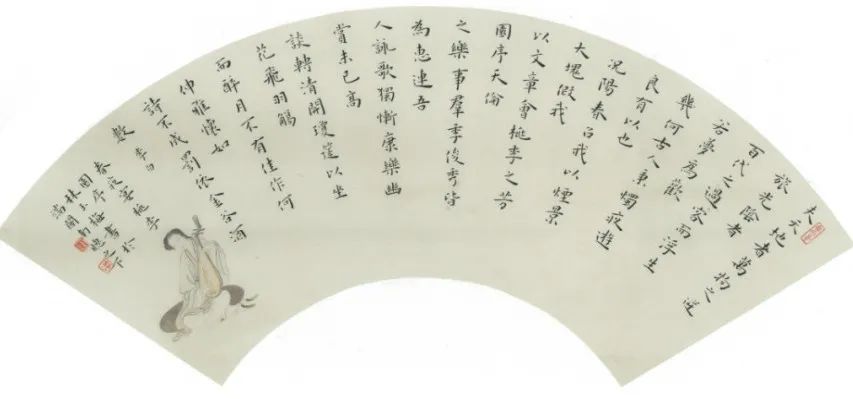 夫天地者萬物之逆
旅光陰者
百代之過客而浮生
若夢為歡
幾何古人秉燭夜遊
良有以也
況陽春召我以煙景
大塊假我
以文章會桃李之芳
園序天倫
之樂事羣季俊秀皆
為惠連吾
人詠歌獨慚康樂幽
賞未已高
談轉清開瓊筵以坐
花飛羽觴
而醉月不有佳作何
伸雅懷如
詩不成罰依金谷酒
數 李白
春夜宴桃李
園序 書於